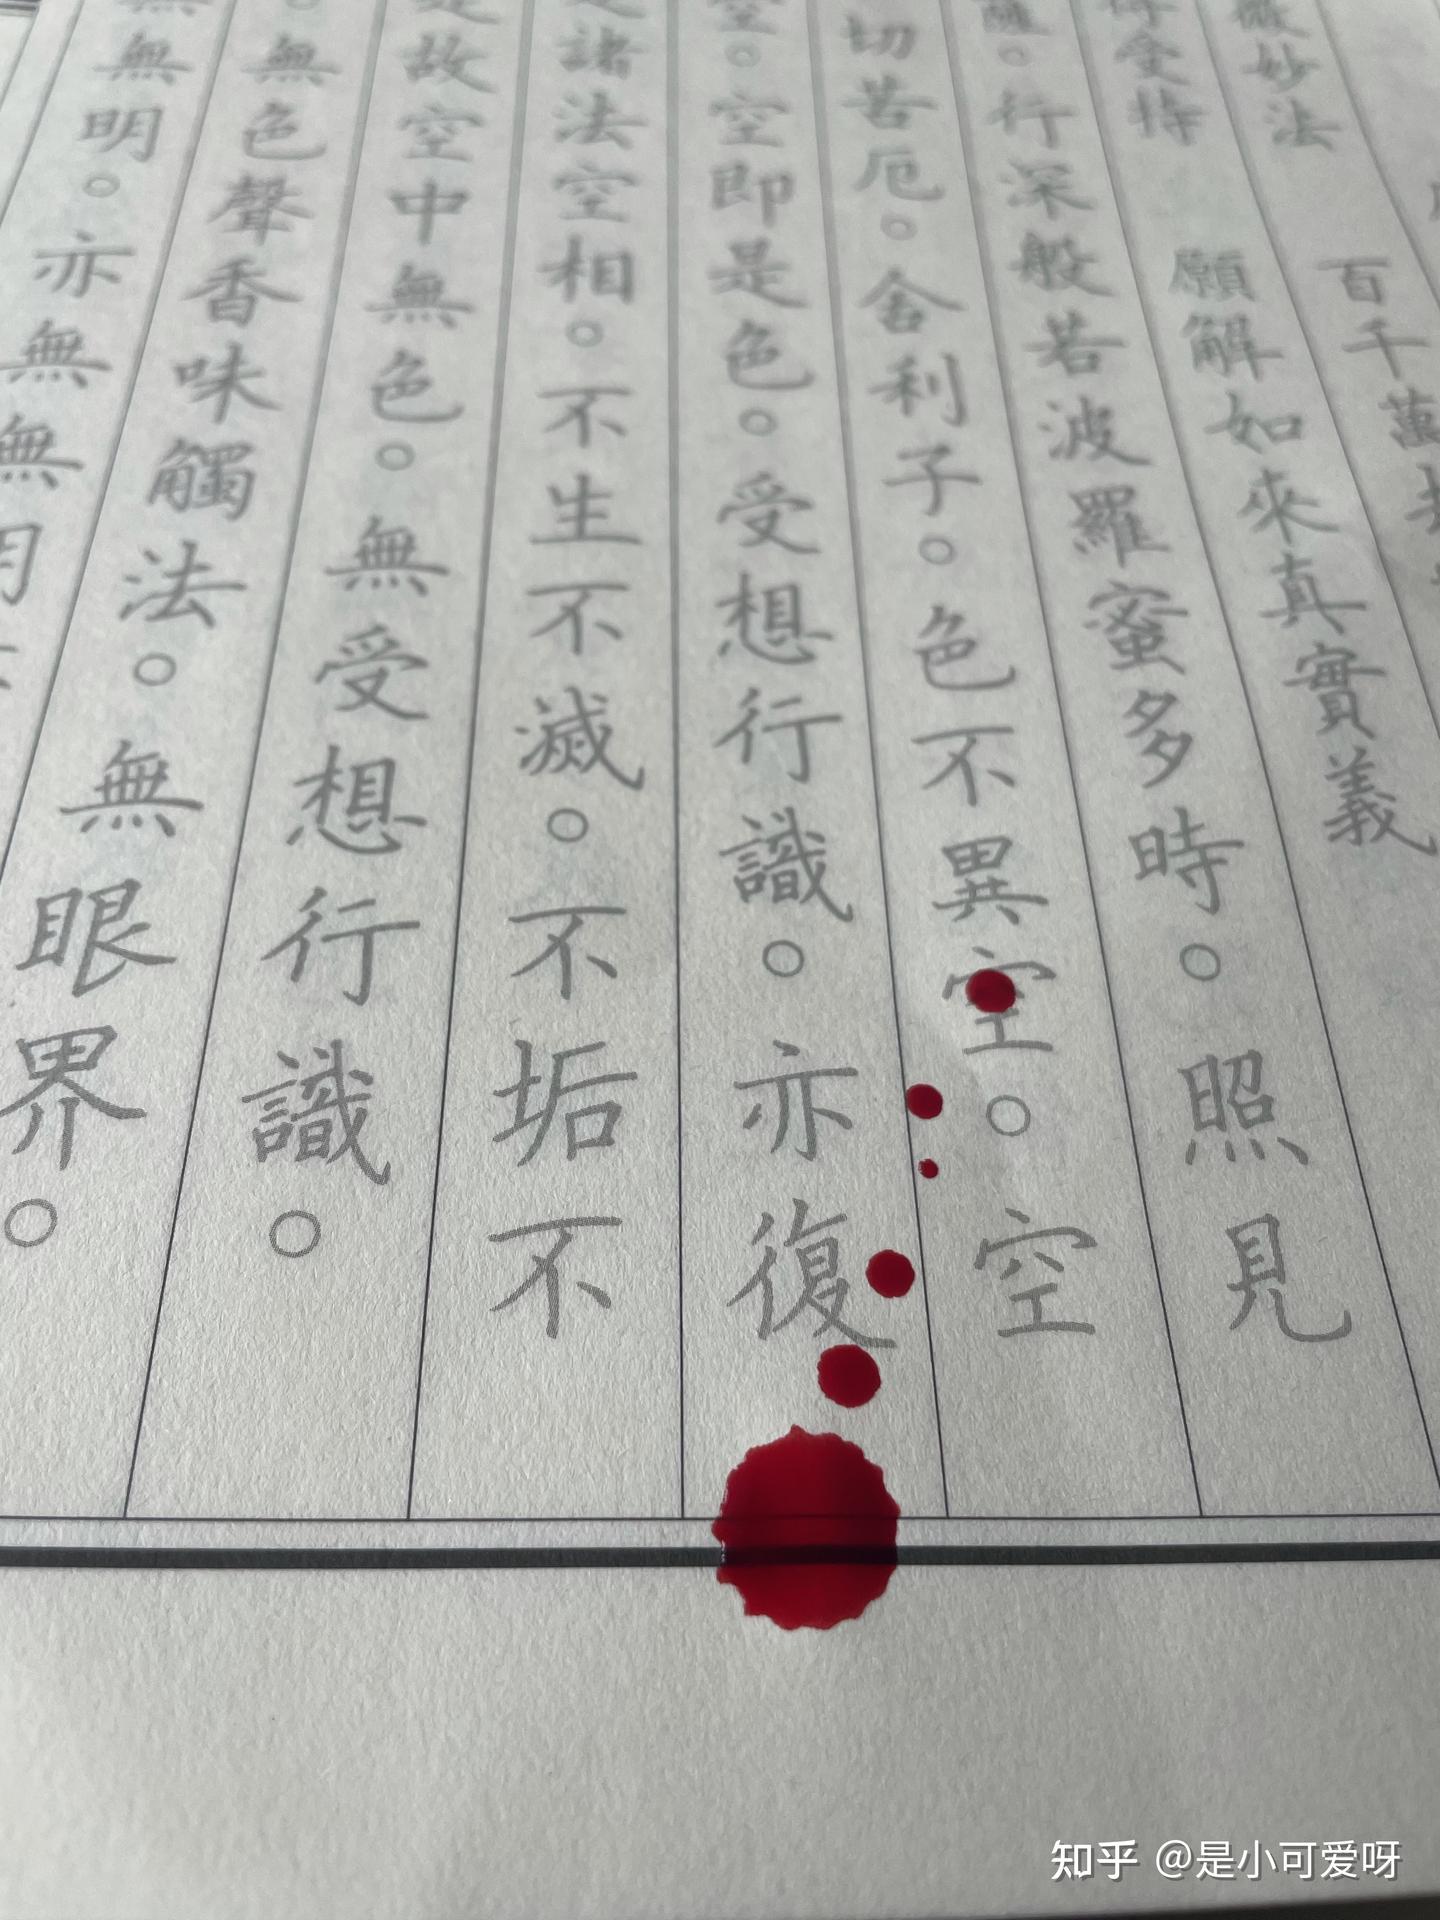 微妙法　百千萬
受持　願解如來真實義
。行深般若波羅蜜多時。照見
切苦厄。舍利子。色不異空。空
空。空即是色。受想行識。亦復
諸法空相。不生不滅。不垢不
故空中無色。無受想行識。
無色聲香味觸法。無眼界。
無明。亦無無
知乎 @是小可爱呀